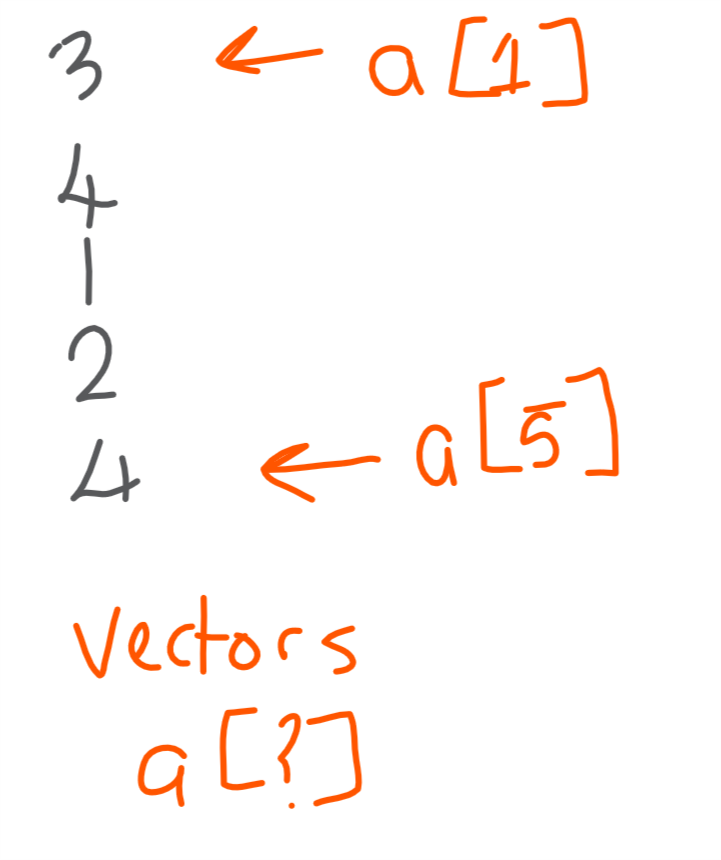 3 ← a[1]
4
1
2
4 ← a[5]
vectors
a[?]